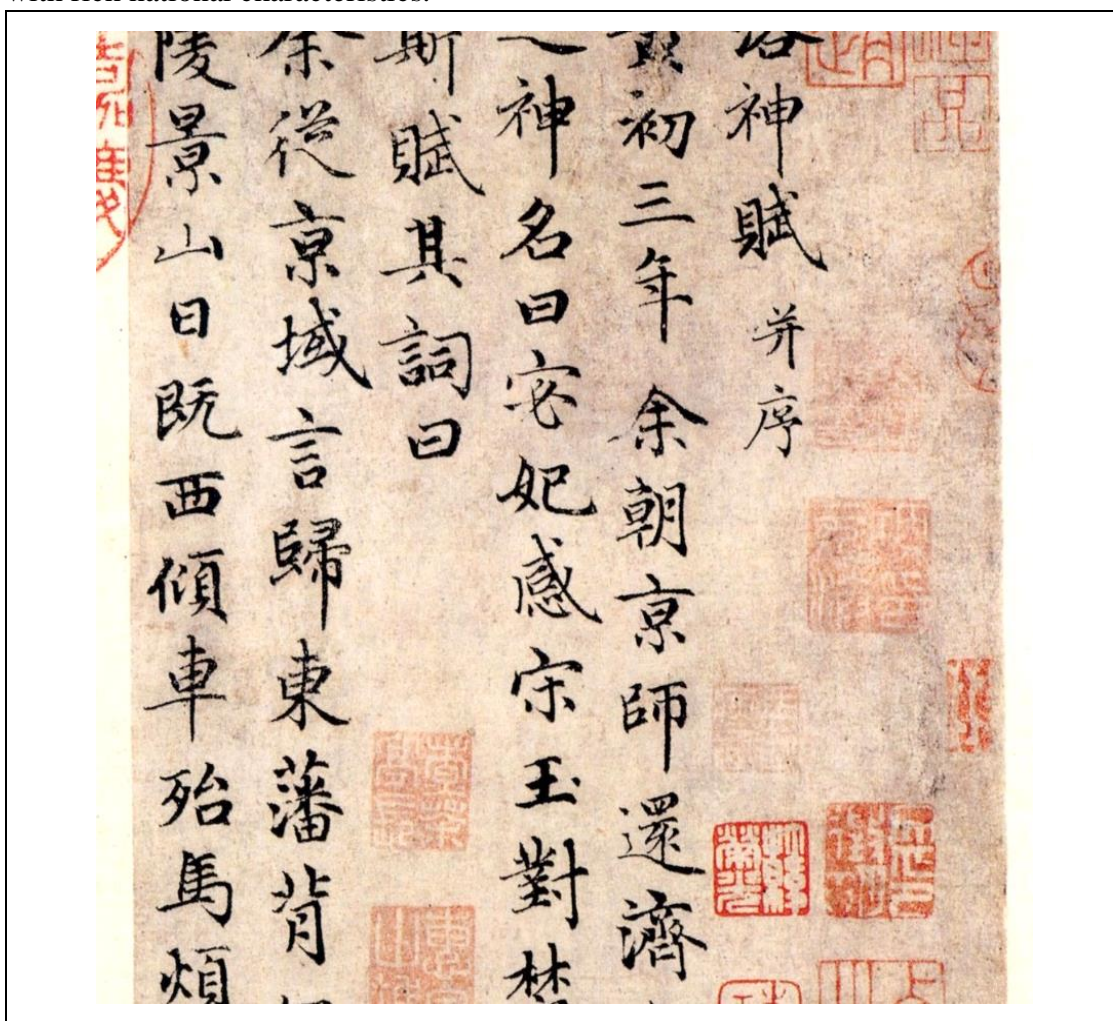 with rich national characteristics.
洛神賦 并序
黃初三年余朝京師還濟
之神名曰宓妃感宋玉對楚
斯賦其詞曰
余從京域言歸東藩背
陵景山日既西傾車殆馬煩